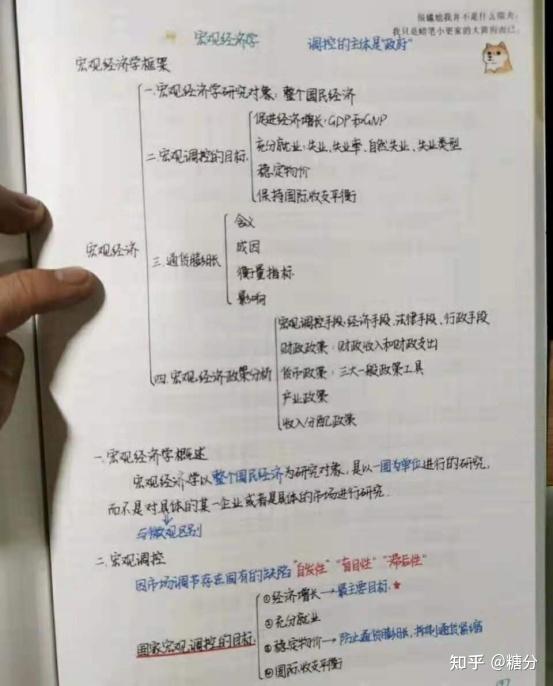 很尴尬我并不是什么柴犬,
我只是蜡笔小更家的大黄狗而已.
宏观经济学 调控的主体是"政府"
宏观经济学框架
一.宏观经济学研究对象:整个国民经济
促进经济增长:GDP和GNP
充分就业:失业、失业率、自然失业、失业类型
二.宏观调控的目标
稳定物价
保持国际收支平衡
含义
宏观经济
成因
三.通货膨胀
衡量指标
影响
宏观调控手段:经济手段、法律手段、行政手段
财政政策:财政收入和财政支出
四.宏观经济政策分析
货币政策:三大一般政策工具
产业政策
收入分配政策
一.宏观经济学概述
宏观经济学以整个国民经济为研究对象,是以一国为单位进行的研究,
而不是对具体的某一企业或者是具体的市场进行研究.
与微观区别
二.宏观调控
因市场调节存在固有的缺陷"自发性""盲目性""滞后性"
①经济增长→最主要目标.★
②充分就业
国家宏观调控的目标
③稳定物价→防止通货膨胀、抑制通货紧缩
④国际收支平衡
知乎 @糖分